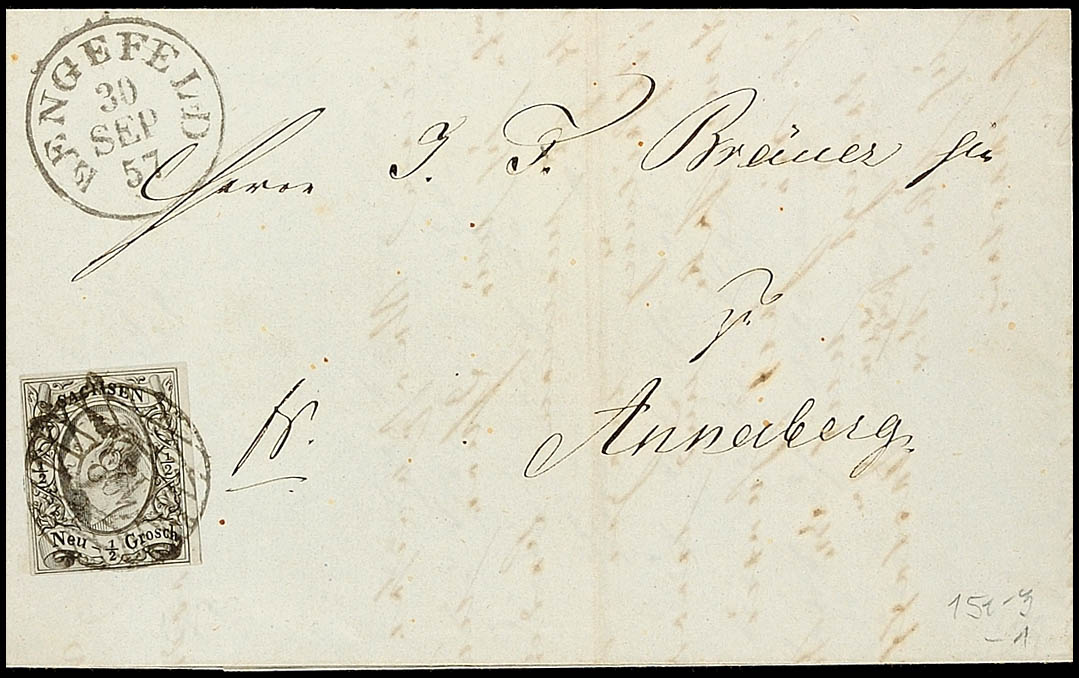 LENGEFELD
30
SEP
57
Herrn J. F. Bräuer jun
z.
Annaberg.
fr.
SACHSEN
½ ½
Neu - ½ Grosch